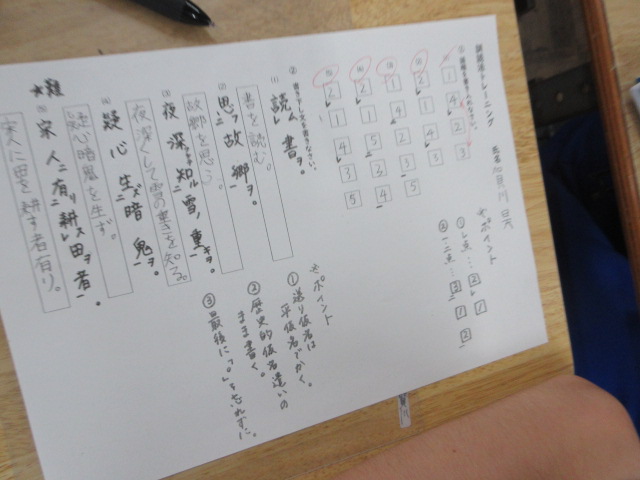 訓読文トレーニング
① 順番を書き入れなさい。
*ポイント
① レ点…2レ 1
② 一二点…2二 1 2一
② 書き下し文を書きなさい。
(1) 読レム 書ヲ。
書を読む。
(2) 思二フ 故郷一ヲ。
故郷を思う。
(3) 夜深知二ル 雪ノ重一キヲ。
夜深くして雪の重きを知る。
(4) 疑心生二ズ 暗鬼一ヲ。
疑心暗鬼を生ず。
*難
(5) 宋人ニ有二リ 耕レス田ヲ者一。
宋人に田を耕す者有り。
*ポイント
① 送り仮名は
平仮名でかく。
② 歴史的仮名遣いの
まま書く。
③ 最後に「。」を忘れずに。